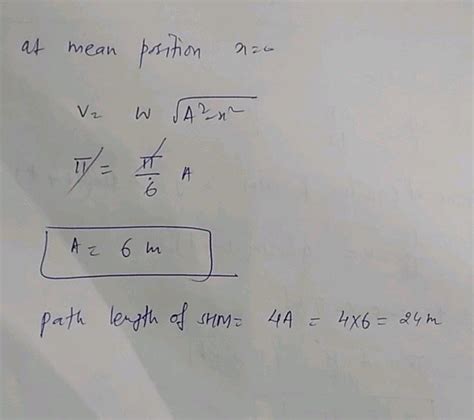 at mean position x=0
V= W √A²-x²
π = π/6 A
A = 6 m
path length of SHM = 4A = 4×6 = 24m